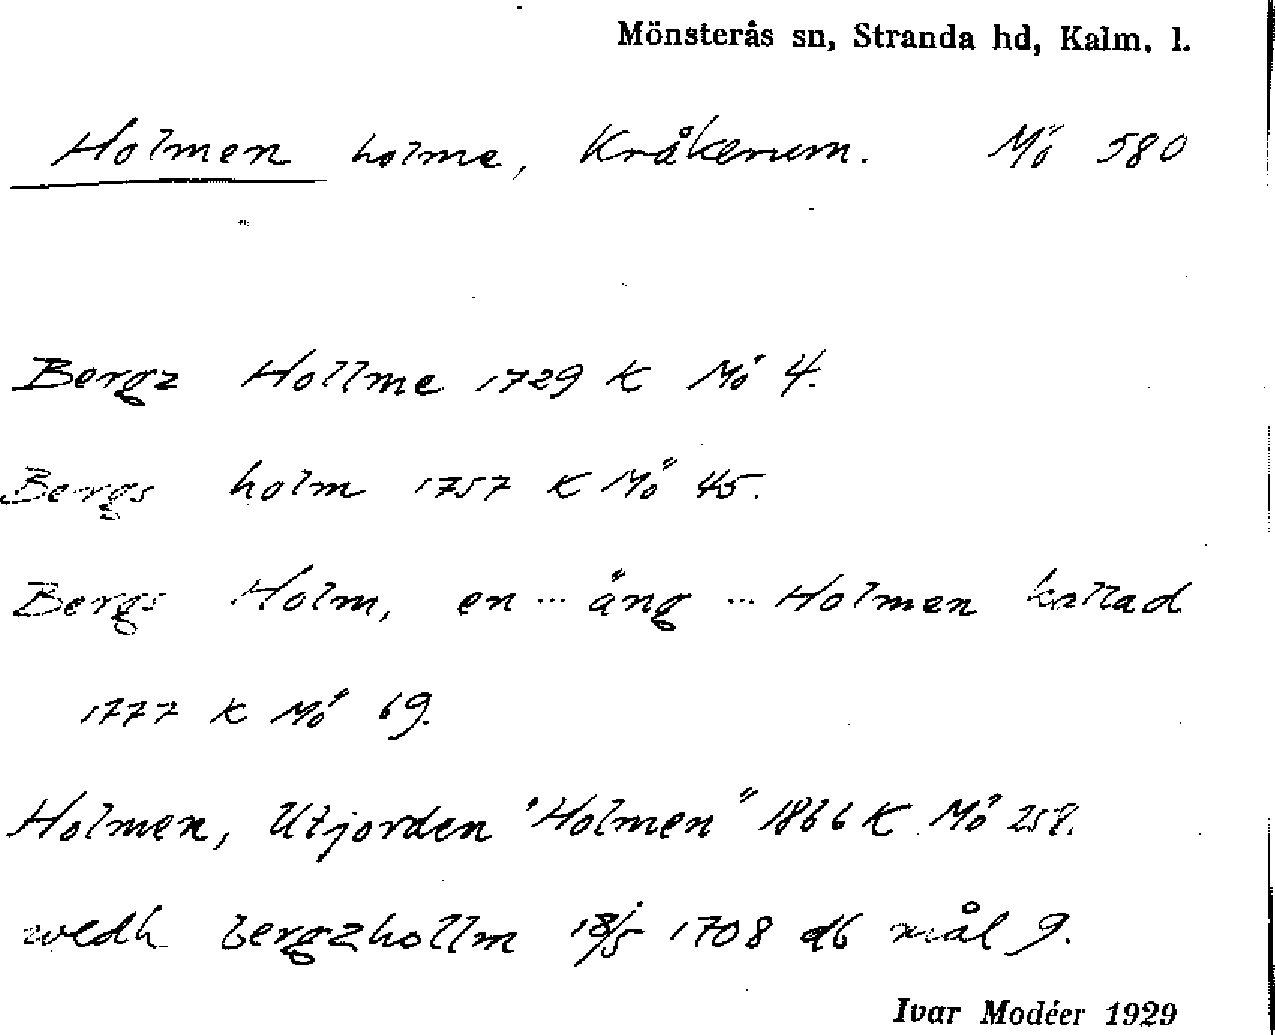 Mönsterås sn, Stranda hd, Kalm. l.
Holmen holme, Kråkerum. Mö 580
Bergz Hollme 1729 K Mö 4.
Bergs holm 1757 K Mö 45.
Bergs Holm, en ... äng ... Holmen kallad
1777 K Mö 69.
Holmen, Utjorden "Holmen" 1866 K Mö 258.
wedh bergzhollm 18/5 1708 db mål 9.
Ivar Modéer 1929